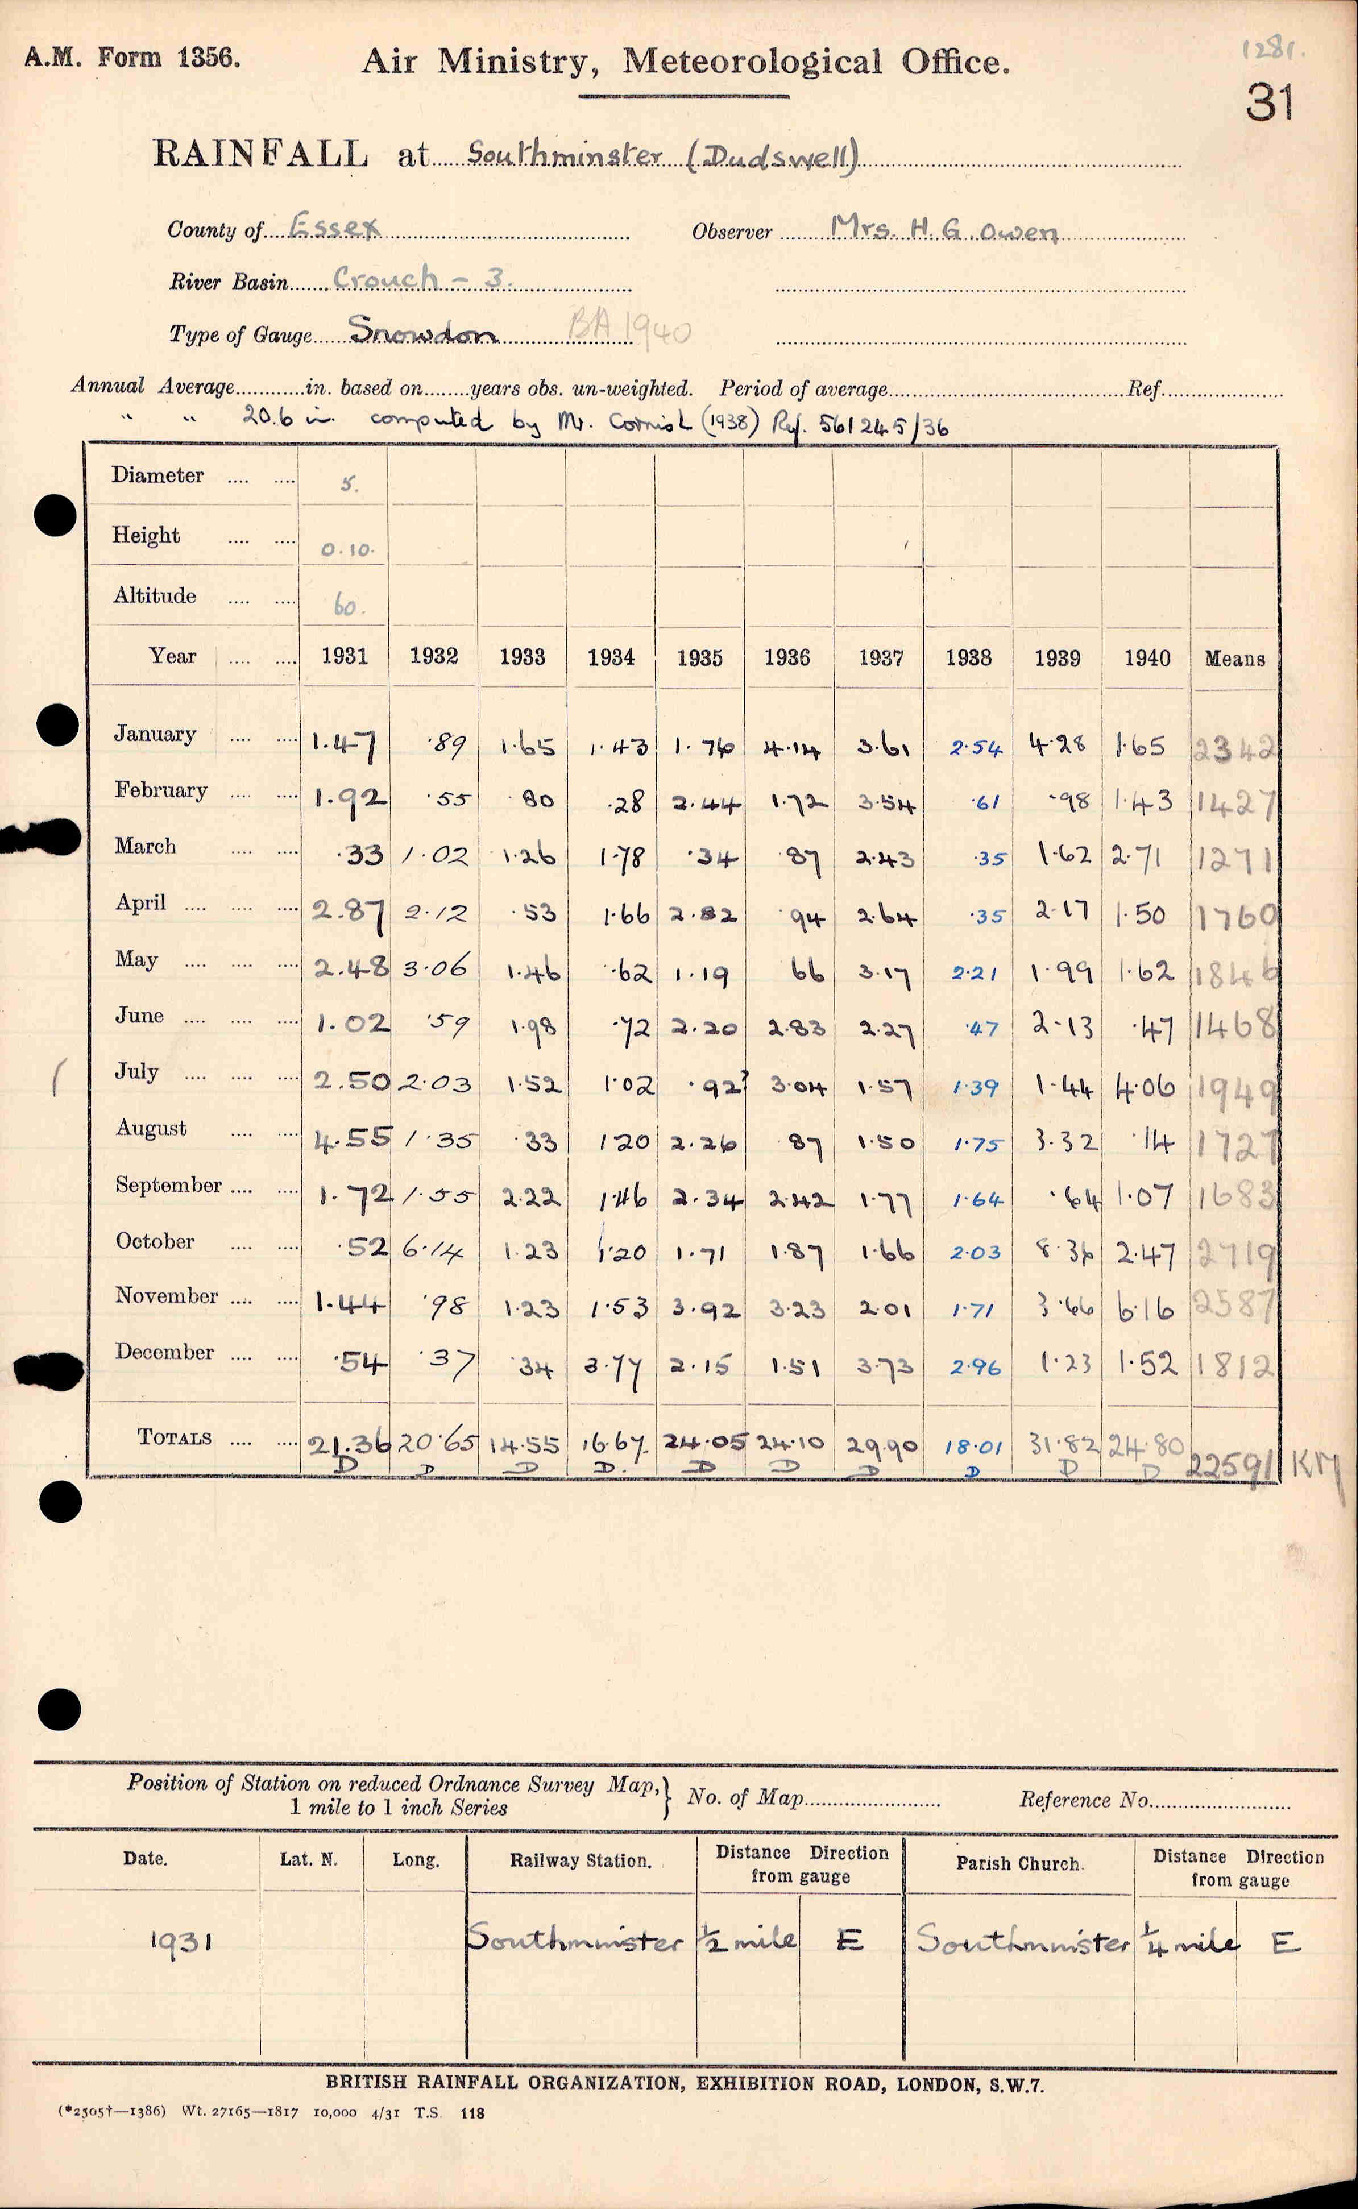 A.M. Form 1356.
Air Ministry, Meteorological Office.
1281.
31
RAINFALL at Southminster (Dudswell)
County of Essex Observer Mrs. H. G. Owen
River Basin Crouch - 3.
Type of Gauge Snowdon BA 1940
Annual Average............in. based on........years obs. un-weighted. Period of average................Ref................
" " 20.6 in. computed by Mr. Cornish (1938) Ref. 561245/36
Diameter .... .... 5.
Height .... .... 0.10.
Altitude .... .... 60.
Year .... .... 1931 1932 1933 1934 1935 1936 1937 1938 1939 1940 Means
January .... .... 1.47 .89 1.65 1.43 1.76 4.14 3.61 2.54 4.28 1.65 2342
February .... .... 1.92 .55 .80 .28 2.44 1.72 3.54 .61 .98 1.43 1427
March .... .... .33 1.02 1.26 1.78 .34 .87 2.43 .35 1.62 2.71 1271
April .... .... .... 2.87 2.12 .53 1.66 2.82 .94 2.64 .35 2.17 1.50 1760
May .... .... .... 2.48 3.06 1.46 .62 1.19 66 3.17 2.21 1.99 1.62 1846
June .... .... .... 1.02 .59 1.98 .72 2.20 2.83 2.27 .47 2.13 .47 1468
July .... .... .... 2.50 2.03 1.52 1.02 .92? 3.04 1.57 1.39 1.44 4.06 1949
August .... .... 4.55 1.35 .33 1.20 2.26 .87 1.50 1.75 3.32 .14 1727
September .... .... 1.72 1.55 2.22 1.46 2.34 2.42 1.77 1.64 .64 1.07 1683
October .... .... .52 6.14 1.23 1.20 1.71 1.87 1.66 2.03 8.36 2.47 2719
November .... .... 1.44 .98 1.23 1.53 3.92 3.23 2.01 1.71 3.66 6.16 2587
December .... .... .54 .37 .34 3.77 2.15 1.51 3.73 2.96 1.23 1.52 1812
TOTALS .... .... 21.36 20.65 14.55 16.67 24.05 24.10 29.90 18.01 31.82 24.80 22591 KM
D D D D. D D D D D D
Position of Station on reduced Ordnance Survey Map,} No. of Map........................ Reference No.........................
1 mile to 1 inch Series
Date. Lat. N. Long. Railway Station. Distance Direction from gauge Parish Church. Distance Direction from gauge
1931 Southminster 1/2 mile E Southminster 1/4 mile E
BRITISH RAINFALL ORGANIZATION, EXHIBITION ROAD, LONDON, S.W.7.
(*2505†—1386) Wt. 27165—1817 10,000 4/31 T.S. 118